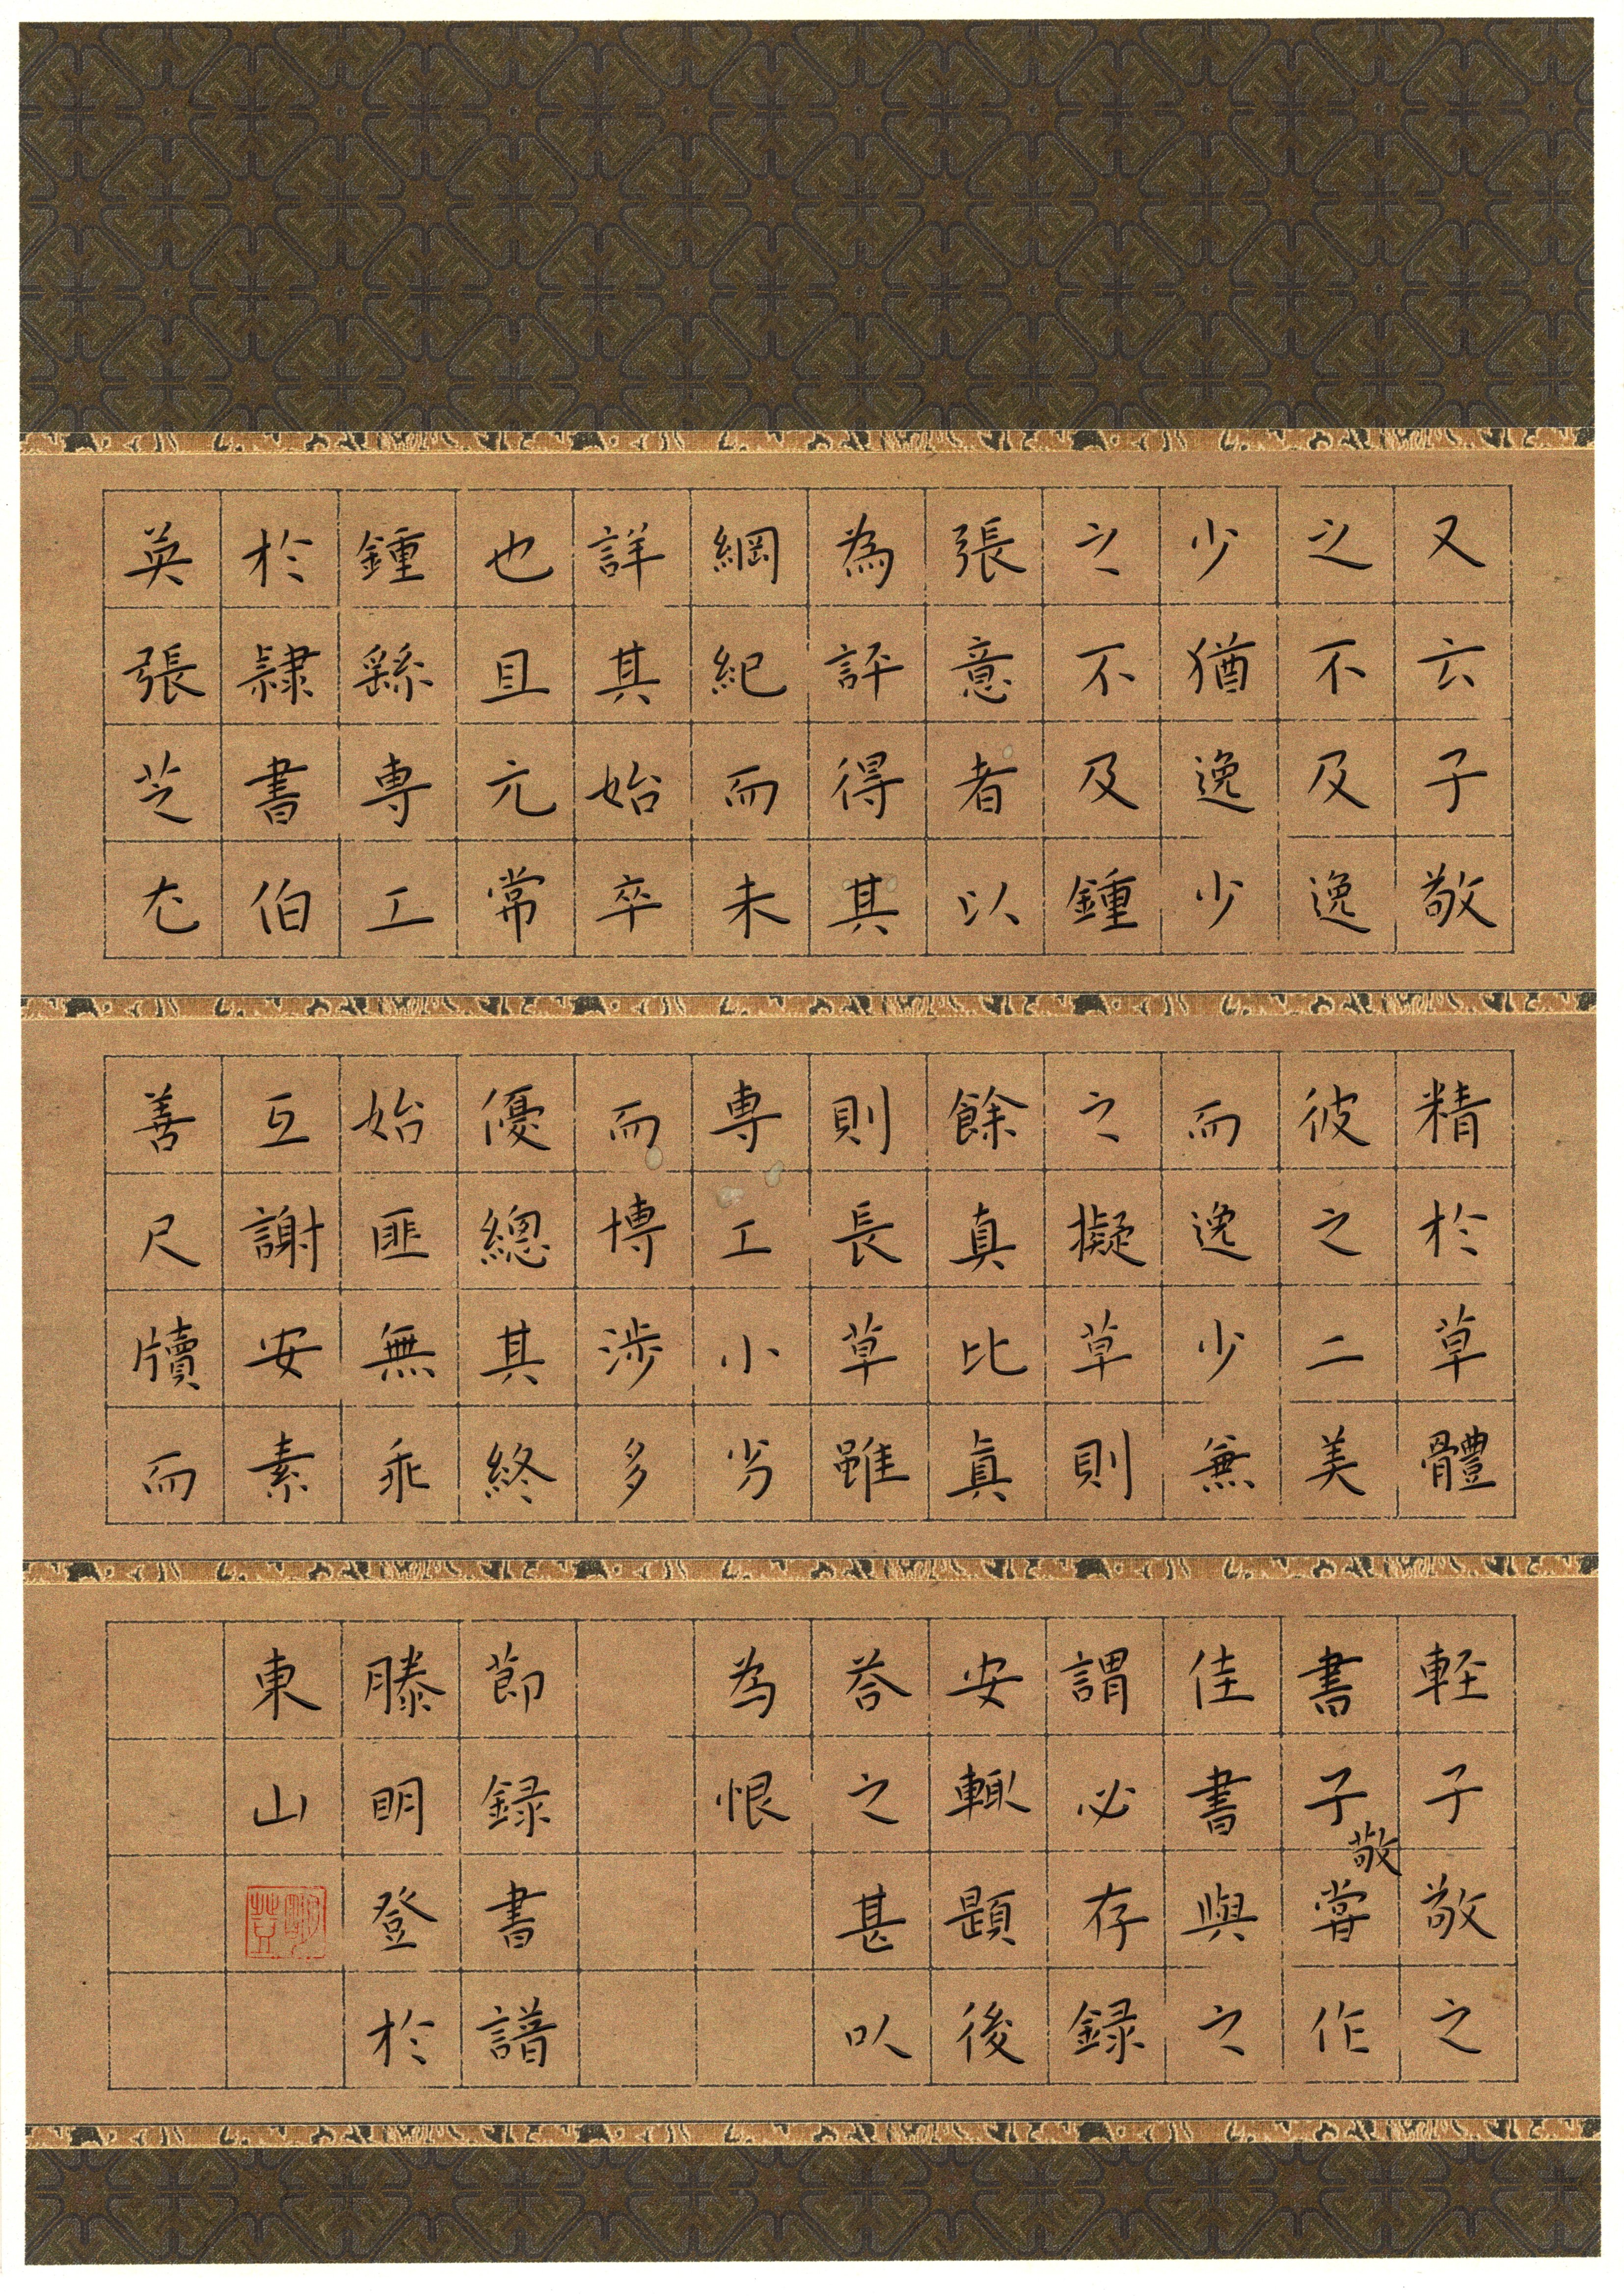 又云子敬
之不及逸
少猶逸少
之不及鍾
張意者以
為評得其
綱紀而未
詳其始卒
也且元常
鍾繇專工
於隸書伯
英張芝尤
精於草體
彼之二美
而逸少兼
之擬草則
餘真比真
則長草雖
專工小劣
而博涉多
優總其終
始匪無乖
互謝安素
善尺牘而
輕子敬之
書子敬嘗作
佳書與之
謂必存録
安輒題後
荅之甚以
為恨
節録書譜
滕明登於
東山
明登